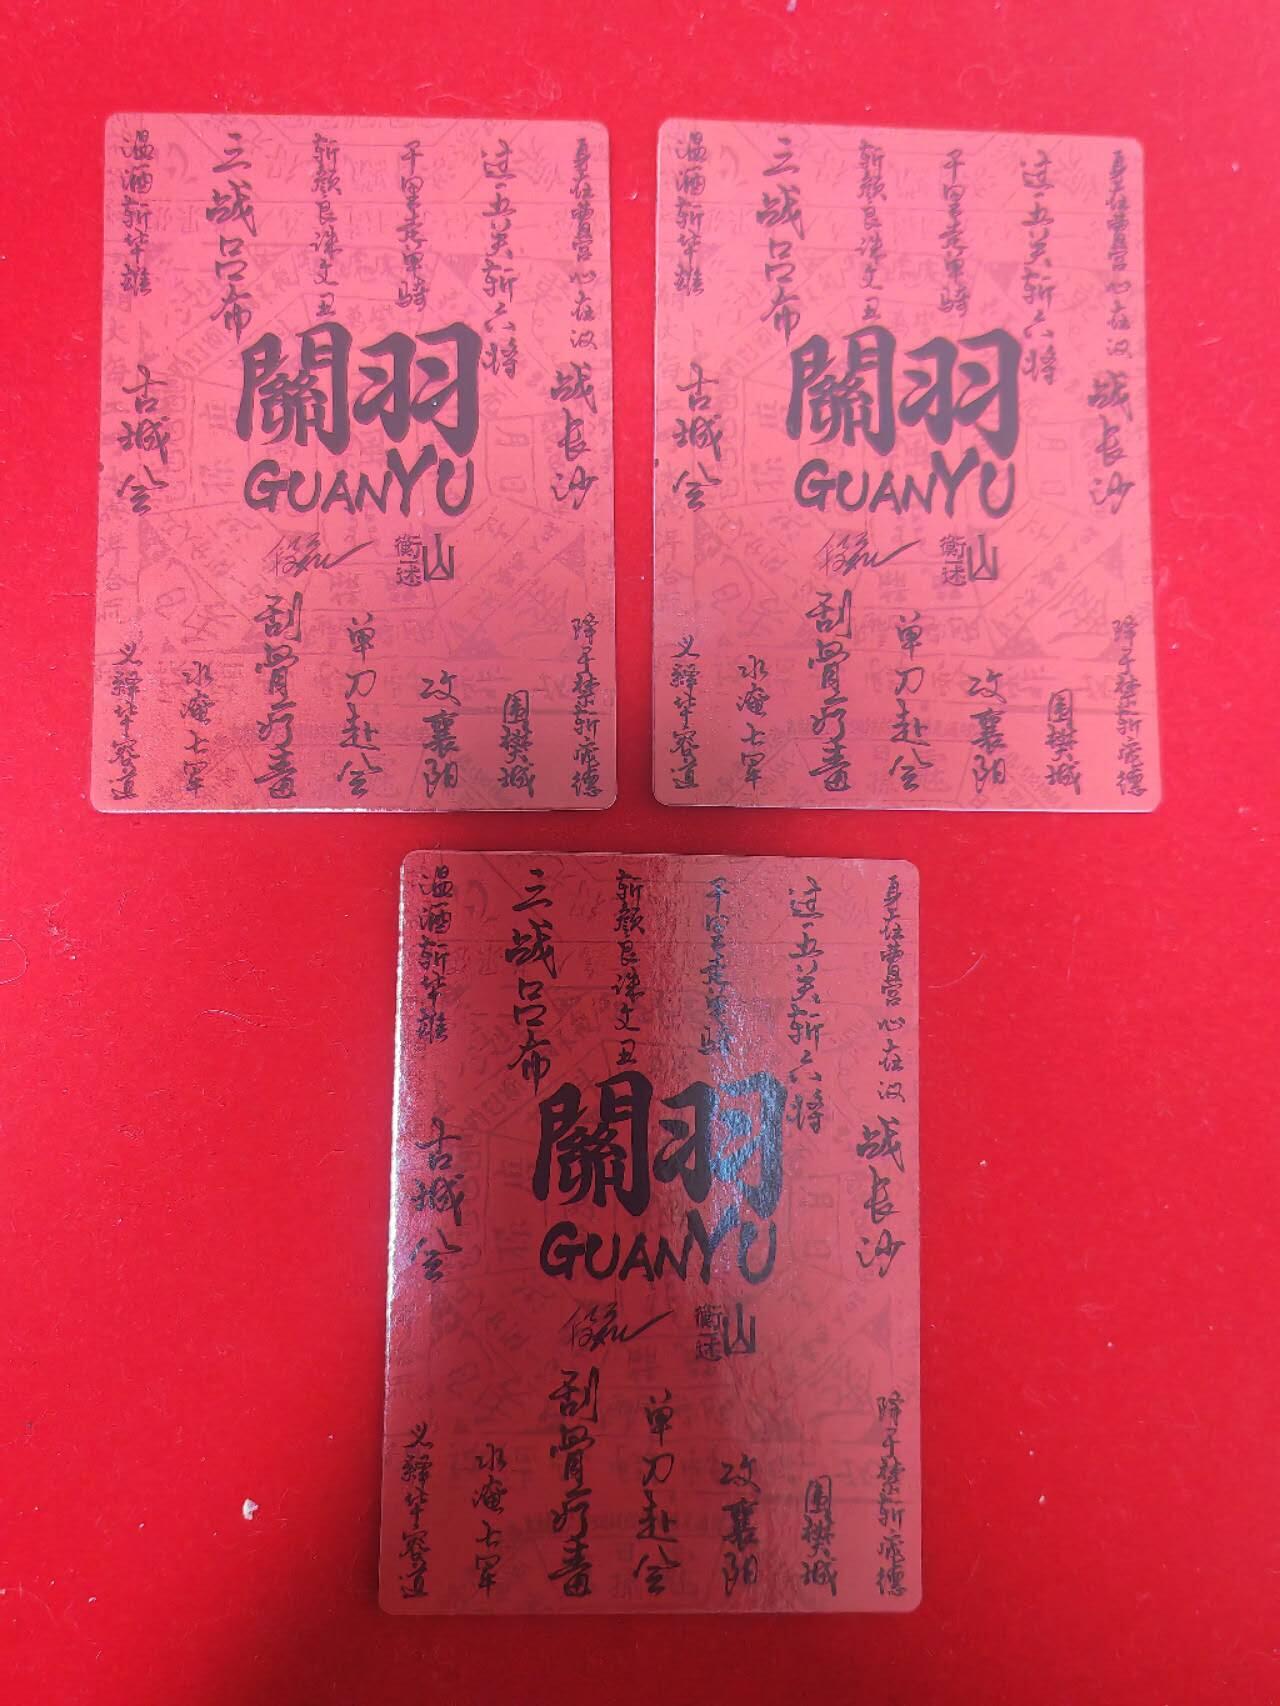 温酒斩华雄
三战吕布
斩颜良诛文丑
千里走单骑
过五关斩六将
身在曹营心在汉
古城会
战长沙
關羽
GUANYU
衡山
义释华容道
水淹七军
刮骨疗毒
单刀赴会
攻襄阳
围樊城
降于禁斩庞德
温酒斩华雄
三战吕布
斩颜良诛文丑
千里走单骑
过五关斩六将
身在曹营心在汉
古城会
战长沙
關羽
GUANYU
衡山
义释华容道
水淹七军
刮骨疗毒
单刀赴会
攻襄阳
围樊城
降于禁斩庞德
温酒斩华雄
三战吕布
斩颜良诛文丑
千里走单骑
过五关斩六将
身在曹营心在汉
古城会
战长沙
關羽
GUANYU
衡山
义释华容道
水淹七军
刮骨疗毒
单刀赴会
攻襄阳
围樊城
降于禁斩庞德